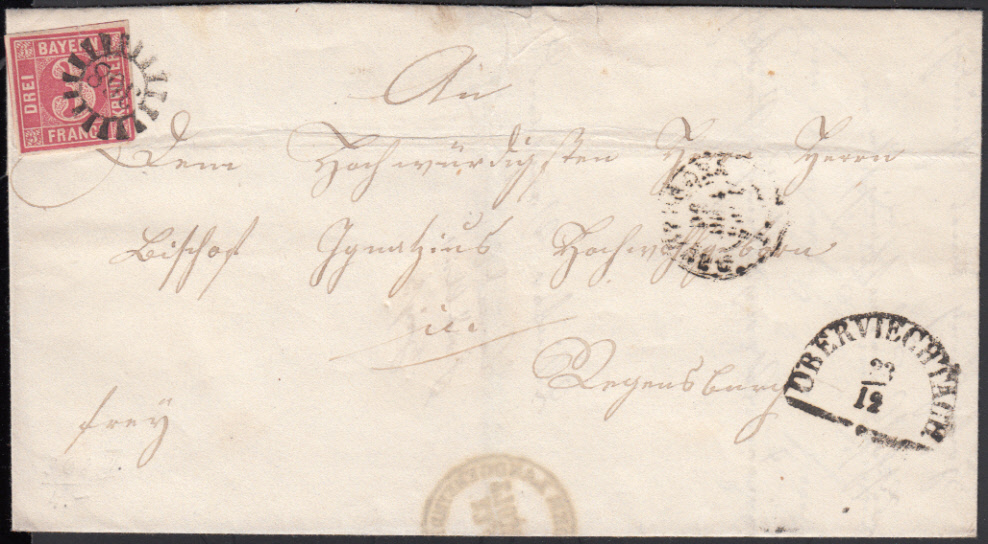 BAYERN
DREI
KREUZER
FRANCO
An
Dem Hochwürdigsten Herrn Herrn
Bischof Ignatzius Hochwohlgeborn
in
Regensburg
frey
OBERVIECHTACH
23
12